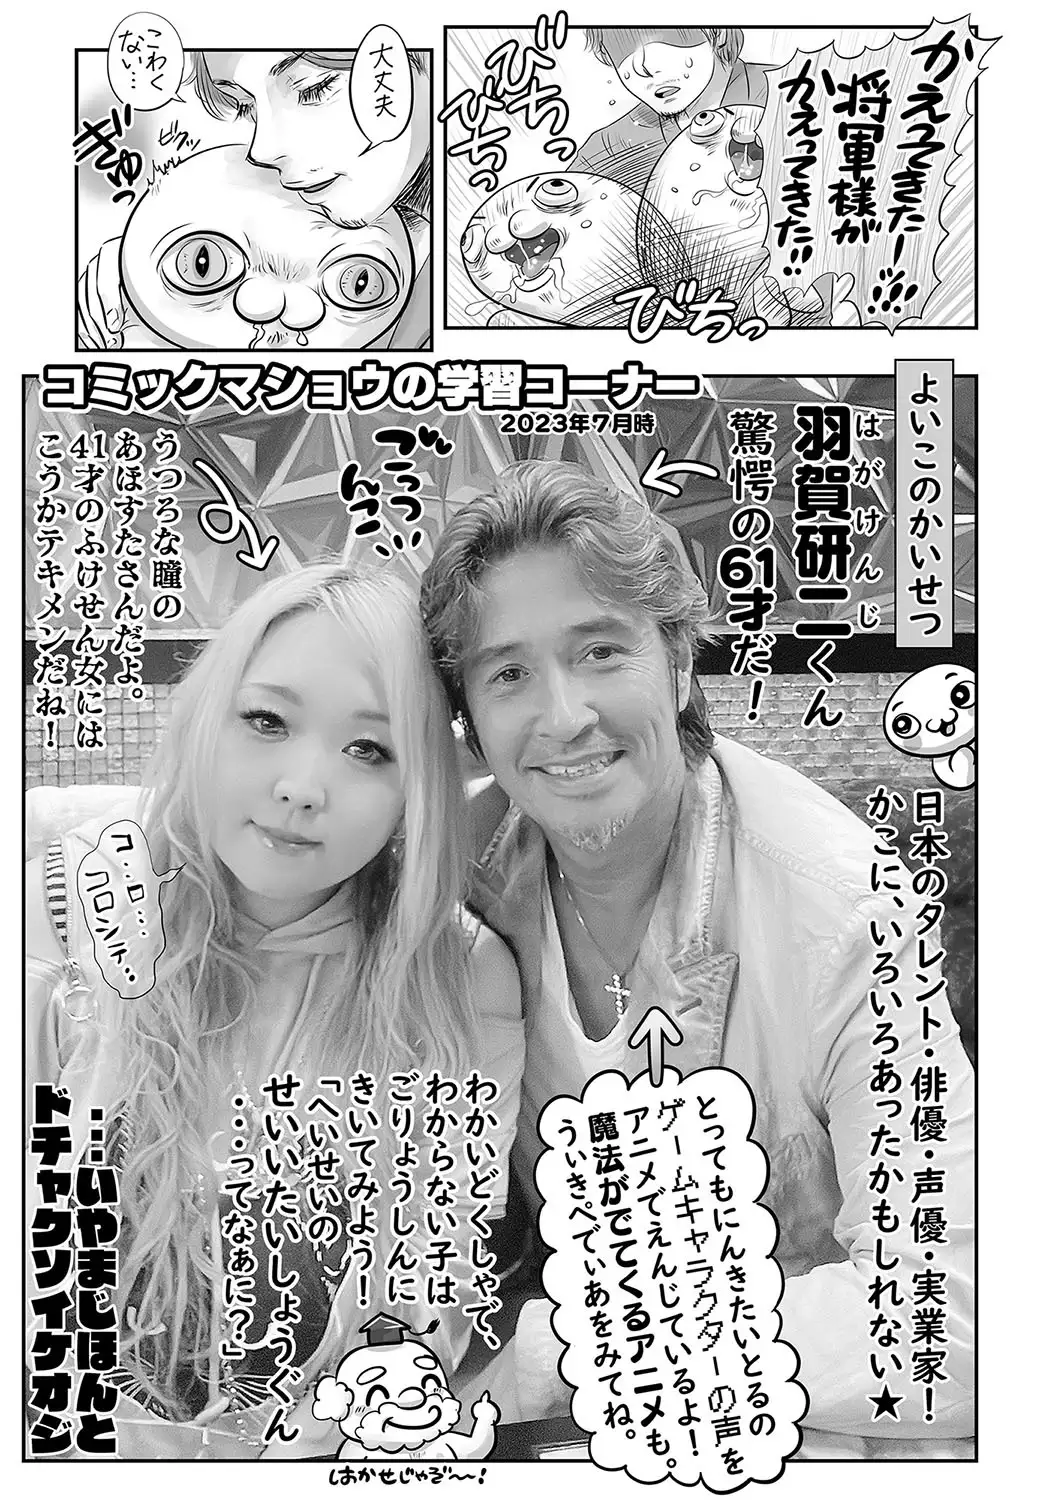 かえってきたー!!!
将軍様が
かえってきた!!
びちっ
びちっ
びちっ
大丈夫
こわく
ない…
ぎゅっ
コミックマショウの学習コーナー
2023年7月時
よいこのかいせつ
はがけんじ
羽賀研二くん
驚愕の61才だ!
ごっつ
んこ
うつろな瞳の
あほすたさんだよ。
41才のふけせん女には
こうかテキメンだね!
日本のタレント・俳優・声優・実業家!
かこに、いろいろあったかもしれない★
コ‥ロ…
コロシテ‥
とってもにんきたいとるの
ゲームキャラクターの声を
アニメでえんじているよ!
魔法がでてくるアニメも。
うぃきぺでぃあをみてね。
わかいどくしゃで、
わからない子は
ごりょうしんに
きいてみよう!
「へいせいの
せいいたいしょうぐん
・・・ってなぁに?」
…いやまじほんと
ドチャクソイケオジ
はかせじゃぞ〜!